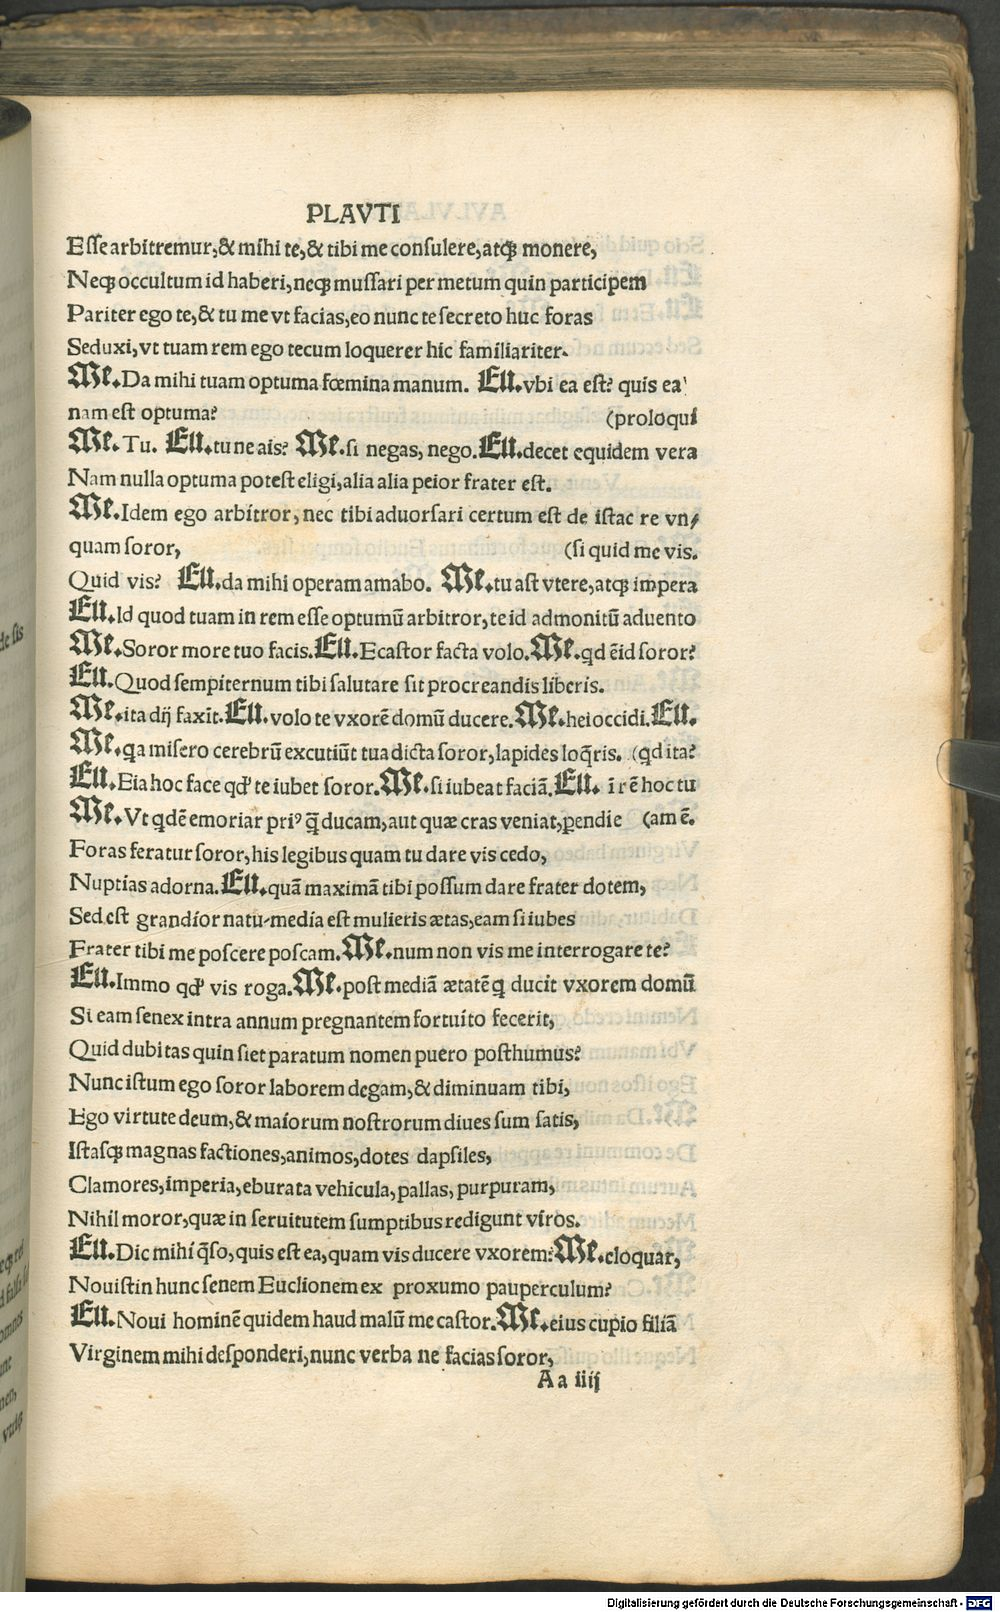 PLAVTI
Eſſe arbitremur,& mihi te,& tibi me conſulere,atqꝫ monere,
Neqꝫ occultum id haberi,neqꝫ muſſari per metum quin participem
Pariter ego te,& tu me vt facias,eo nunc te ſecreto huc foras
Seduxi,vt tuam rem ego tecum loquerer hic familiariter.
Me.Da mihi tuam optuma fœmina manum. Eu.vbi ea eſt? quis ea
nam eſt optuma? (proloqui
Me.Tu. Eu.tu ne ais? Me.ſi negas, nego.Eu.decet equidem vera
Nam nulla optuma poteſt eligi,alia alia peior frater eſt.
Me.Idem ego arbitror, nec tibi aduorſari certum eſt de iſtac re vn/
quam ſoror, (ſi quid me vis.
Quid vis? Eu.da mihi operam amabo. Me.tu aſt vtere,atqꝫ impera
Eu.Id quod tuam in rem eſſe optumū arbitror,te id admonitū aduento
Me.Soror more tuo facis.Eu.Ecaſtor facta volo.Me.qd ēid ſoror?
Eu.Quod ſempiternum tibi ſalutare ſit procreandis liberis.
Me.ita dij faxīt.Eu.volo te vxorē domū ducere.Me.hei occidi.Eu.
Me.qa miſero cerebrū excutiūt tua dicta ſoror,lapides loq̄ris. (qd ita?
Eu.Eia hoc face qd' te iubet ſoror.Me.ſi iubeat faciā.Eu. ī rē hoc tu
Me.Vt qdē emoriar priꝰ q̄ ducam,aut quæ cras veniat,ꝑendie (am ē.
Foras feratur ſoror,his legibus quam tu dare vis cedo,
Nuptias adorna.Eu.quā maximā tibi poſſum dare frater dotem,
Sed eſt grandior natu-media eſt mulieris ætas,eam ſi iubes
Frater tibi me poſcere poſcam.Me.num non vis me interrogare te?
Eu.Immo qd' vis roga.Me.poſt mediā ætatē q ducit vxorem domū
Si eam ſenex intra annum pregnantem fortuito fecerit,
Quid dubitas quin ſiet paratum nomen puero poſthumus?
Nunc iſtum ego ſoror laborem degam,& diminuam tibi,
Ego virtute deum,& maiorum noſtrorum diues ſum ſatis,
Iſtaſqꝫ magnas factiones,animos,dotes dapſiles,
Clamores,imperia,eburata vehicula,pallas,purpuram,
Nihil moror,quæ in ſeruitutem ſumptibus redigunt viros.
Eu.Dic mihi q̄ſo,quis eſt ea,quam vis ducere vxorem?Me.eloquar,
Nouiſtin hunc ſenem Euclionem ex proxumo pauperculum?
Eu.Noui hominē quidem haud malū me caſtor.Me.eius cupio filiā
Virginem mihi deſponderi,nunc verba ne facias ſoror,
Aa iiij
Digitalisierung gefördert durch die Deutsche Forschungsgemeinschaft - DFG